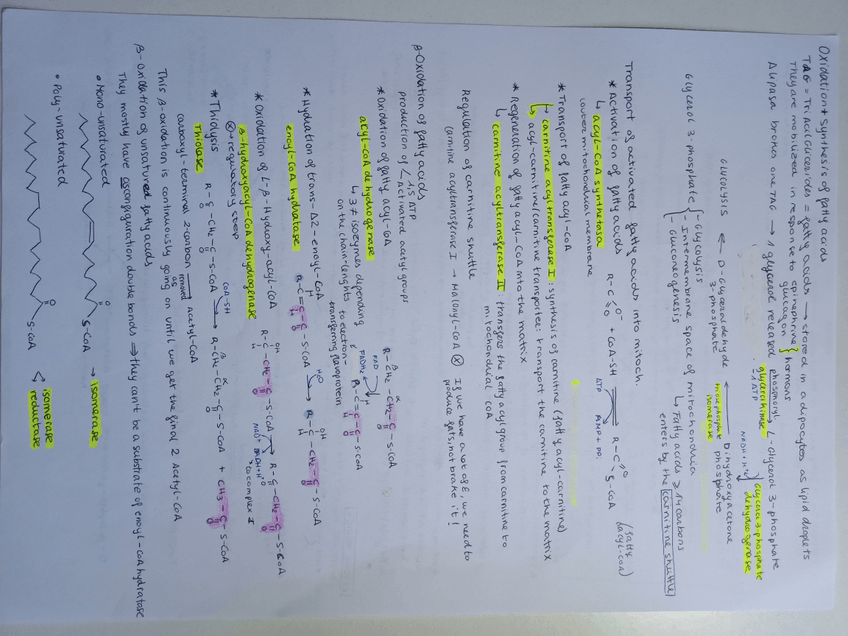 Oxidation + synthesis of fatty acids
TAG = TriAcilGlicerides = fatty acids → stored in adipocytes as lipid droplets
They are mobilized in response to epinephrine } hormons
glucagon
A lipase brokes one TAG → 1 glycerol released
glycerol kinase
-1 ATP
L-Glycerol 3-phosphate
NADH+H+
Glycerol 3-phosphate
dehydrogenase
GLYCOLYSIS ← D-Glyceraldehyde ← Dihydroxyacetone
3-phosphate phosphate
phosphate
isomerase
Glycerol 3-phosphate { - Glycolysis
- Intermembrane space of mitochondria
- Gluconeogenesis
↳ Fatty acids ≥ 14 carbons
enters by the carnitine shuttle
Transport of activated fatty acids into mitoch.
* Activation of fatty acids
↳ acyl-CoA synthetase
outer mitochondrial membrane
R-C + CoA-SH ⇒ R-C
O O- O
S-CoA
ATP AMP + PPi
(fatty acyl-CoA)
* Transport of fatty acyl-CoA
↳ carnitine acyltransferase I: synthesis of carnitine (fatty acyl-carnitine)
↳ acyl-carnitine/carnitine transporter: transport the carnitine to the matrix
* Regeneration of fatty acyl-CoA into the matrix
↳ carnitine acyltransferase II: transfers the fatty acyl group from carnitine to
mitochondrial CoA
Regulation of carnitine shuttle
Carnitine acyltransferase I → Malonyl-CoA ⊗ If we have a lot of E, we need to
produce fats, not brake it!
β-Oxidation of fatty acids
production of < 1.5 ATP
Activated acetyl groups
* Oxidation of fatty acyl-CoA
acyl-CoA dehydrogenase
↳ 3 ≠ isozymes depending
on the chain-lenghts
R-CH2-CH2-C-S-CoA
β α O
FAD
FADH2
R-C=C-C-S-CoA
H H O
to electron-
transferring flavoprotein
* Hydration of trans-Δ2-enoyl-CoA
enoyl-CoA hydratase
R-C=C-C-S-CoA → R-C-CH2-C-S-CoA
H2O OH H O
* Oxidation of L-β-Hydroxy-acyl-CoA
β-hydroxyacyl-CoA dehydrogenase
⊗ → regulatory step
R-C-CH2-C-S-CoA → R-C-CH2-C-S-CoA
OH H O NAD+ NADH+H+ O O
to complex I
* Thiolysis
Thiolase
R-C-CH2-C-S-CoA → R-CH2-CH2-C-S-CoA + CH3-C-S-CoA
O O CoA-SH β α O O
This β-oxidation is continuously going on until we get the final 2 Acetyl-CoA
carboxyl-terminal 2 carbon removed as Acetyl-CoA
β-oxidation of unsatured fatty acids
They mostly have cis configuration double bonds ⇒ they can't be a substrate of enoyl-CoA hydratase
• Mono-unsaturated
O
S-CoA → isomerase
• Poly-unsaturated
O
S-CoA < isomerase
reductase